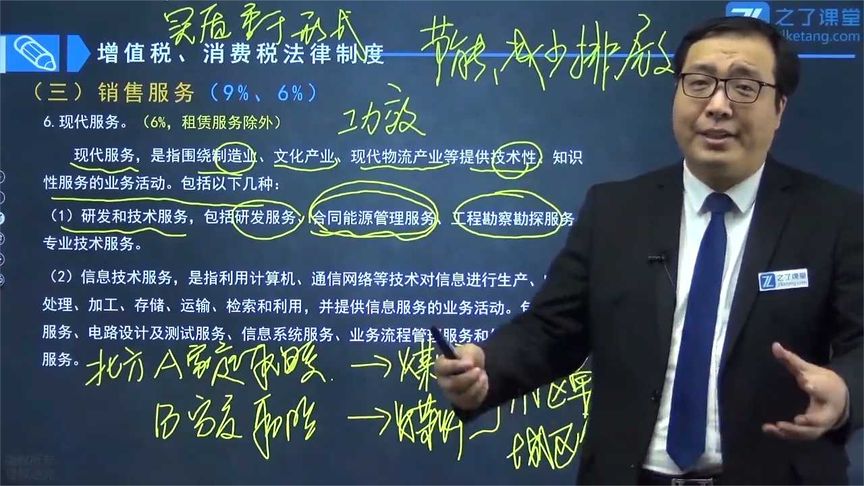 之了课堂
zlketang.com
实质重于形式
节能,减少排放
增值税、消费税法律制度
（三）销售服务（9%、6%）
6.现代服务。（6%，租赁服务除外）
功效
现代服务，是指围绕制造业、文化产业、现代物流产业等提供技术性、知识
性服务的业务活动。包括以下几种：
（1）研发和技术服务，包括研发服务、合同能源管理服务、工程勘察勘探服务
专业技术服务。
（2）信息技术服务，是指利用计算机、通信网络等技术对信息进行生产、
处理、加工、存储、运输、检索和利用，并提供信息服务的业务活动。
服务、电路设计及测试服务、信息系统服务、业务流程管理服务和
服务。
北方A家庭取暖→煤
B家庭取暖→煤
之了课堂
zlketang.com